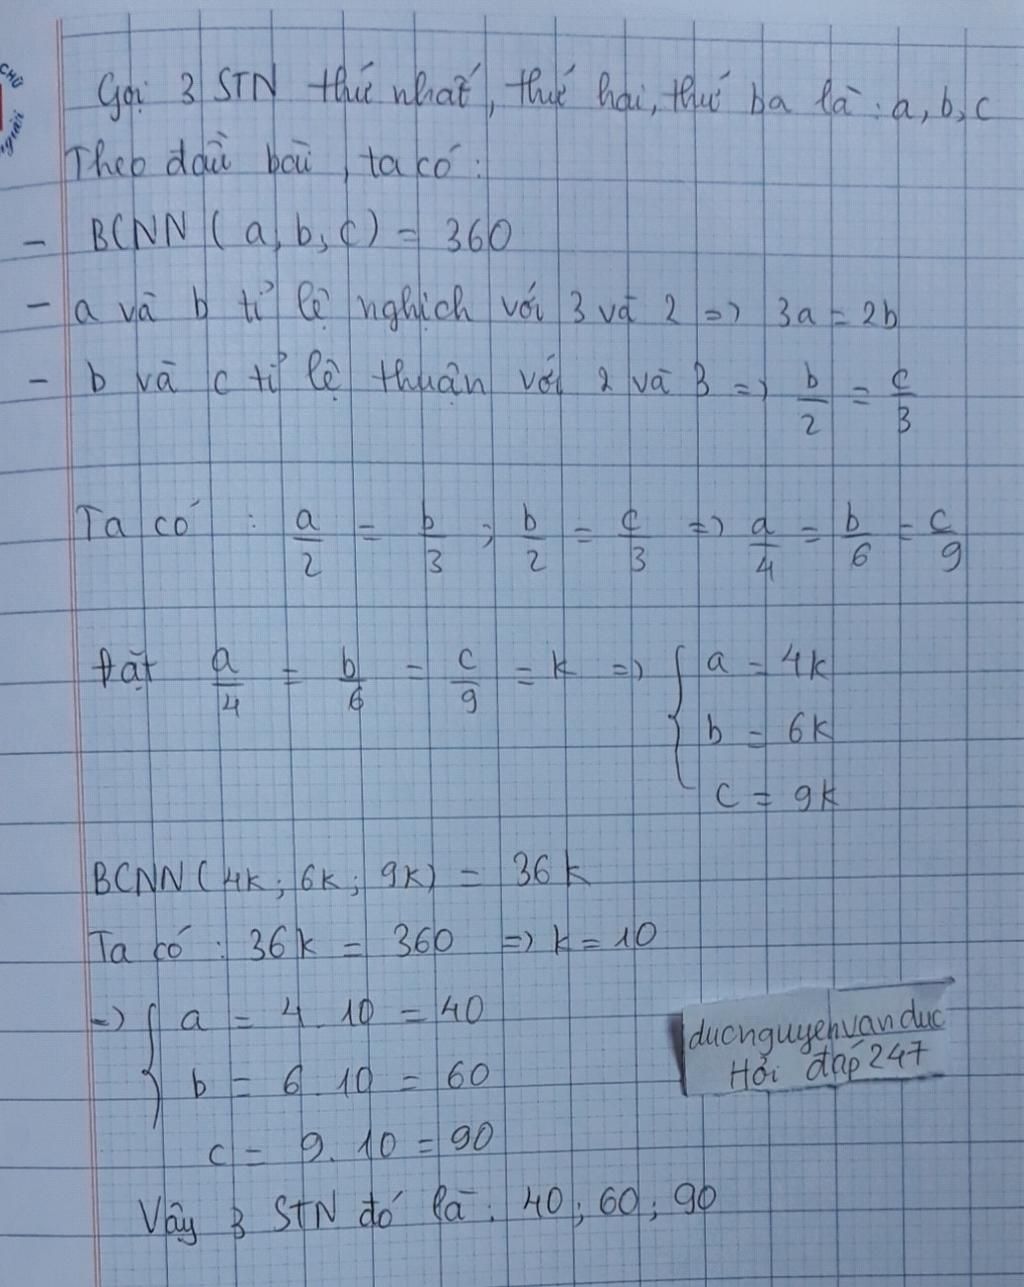 CHỮ
Gọi 3 STN thứ nhất, thứ hai, thứ ba là: a, b, c
Theo đầu bài, ta có:
- BCNN(a, b, c) = 360
- a và b tỉ lệ nghịch với 3 và 2 => 3a = 2b
- b và c tỉ lệ thuận với 2 và 3 => b/2 = c/3
Ta có: a/2 = b/3; b/2 = c/3 => a/4 = b/6 = c/9
Đặt a/4 = b/6 = c/9 = k => { a = 4k
b = 6k
c = 9k
BCNN(4k; 6k; 9k) = 36k
Ta có: 36k = 360 => k = 10
=> { a = 4.10 = 40
b = 6.10 = 60
c = 9.10 = 90
ducnguyenvanduc
Hỏi đáp 247
Vậy 3 STN đó là: 40; 60; 90